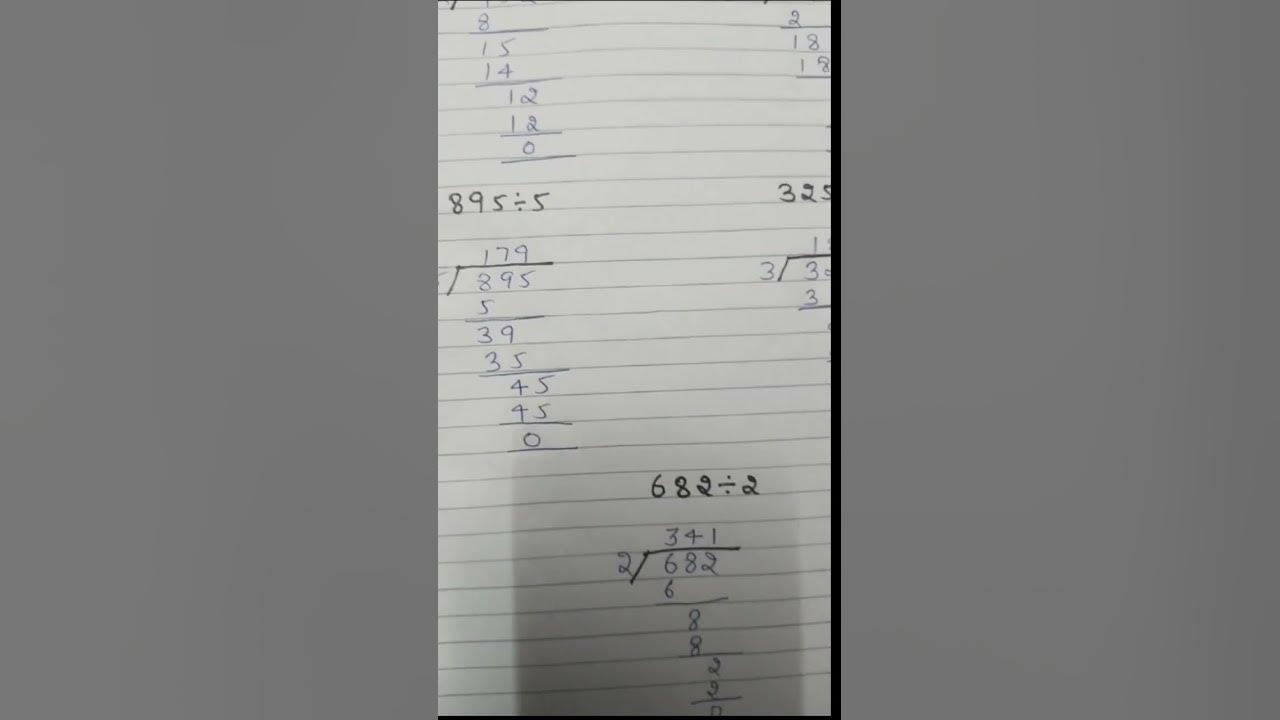 8
15
14
12
12
0
2
18
18
895÷5
179
895
5
39
35
45
45
0
325
3
3
3
682÷2
341
2 682
6
8
8
2
2